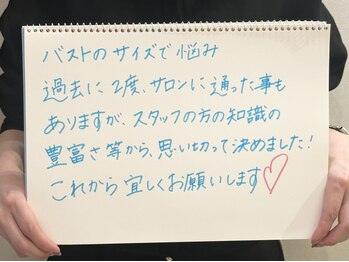 バストのサイズで悩み
過去に2度、サロンに通った事も
ありますが、スタッフの方の知識の
豊富さ等から、思い切って決めました！
これから宜しくお願いします♡